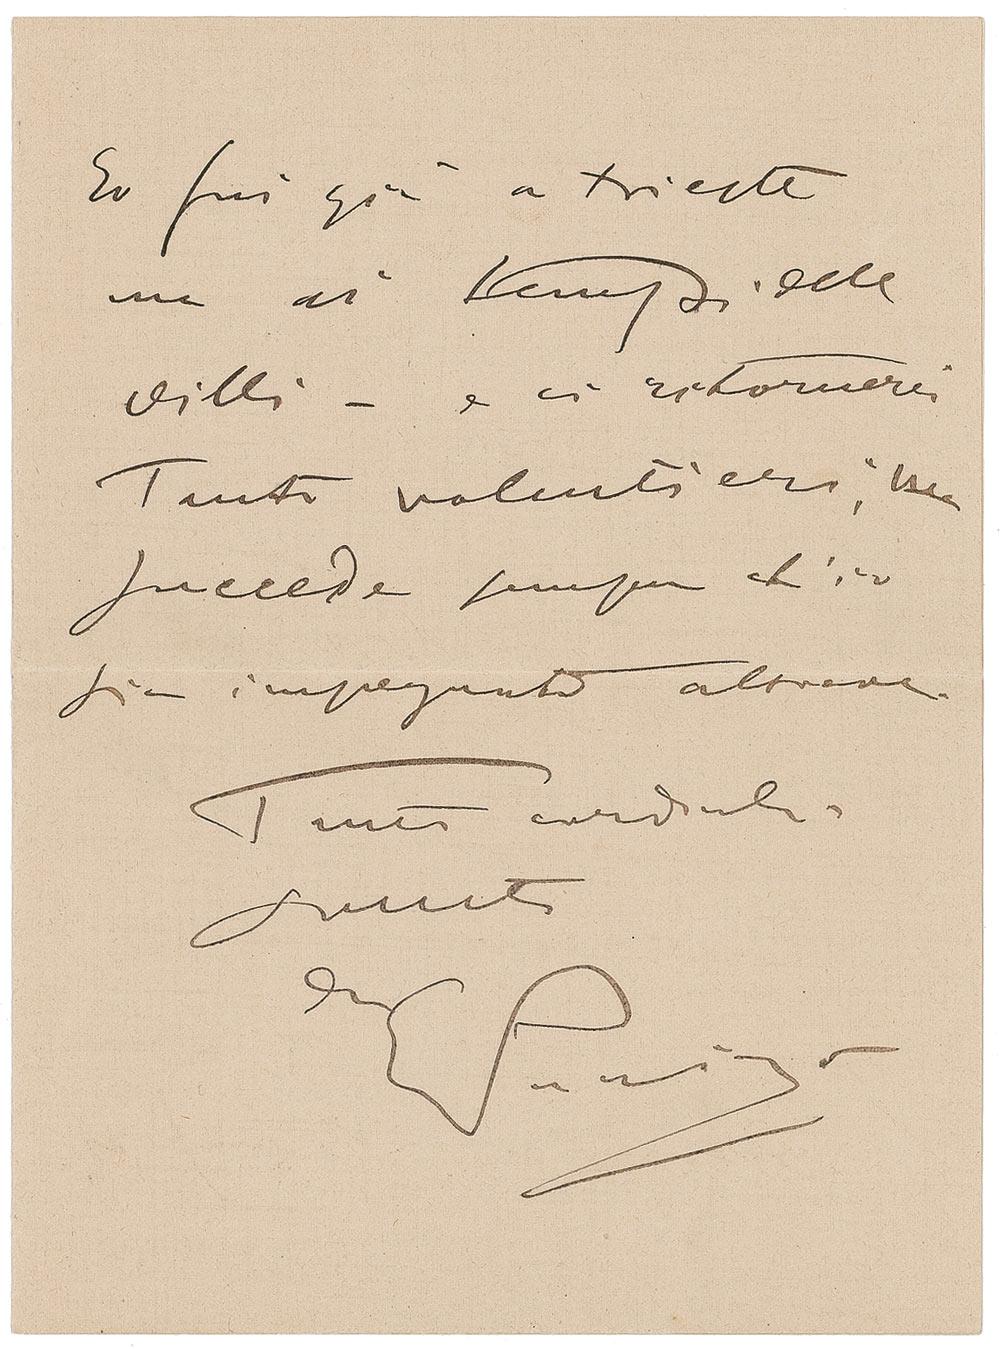 Io fui già a trieste
ma ai tempi delle
Villi – e ci ritornerei
Tanto volentieri, ma
succede sempre ch'io
sia impegnato altrove.
Tanti cordiali
saluti
G Puccini